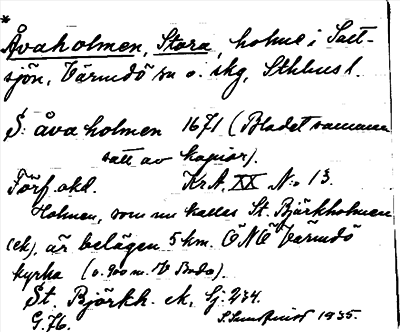 *
Åvaholmen, Stora, holme i Salt-
sjön, Värmdö sn o. skg, Sthlms l.
S: åva holmen 1671 (Bladet samman
satt av kopior).
Förf. okd. KrA. XX N:o 13.
Holmen, som nu kallas St. Björkholmen
(ek), är belägen 5 km. ÖNÖ Värmdö
kyrka (o. 900 m. V Bodo).
St. Björkh. ek, Gj. 234.
G. 76. 1935.